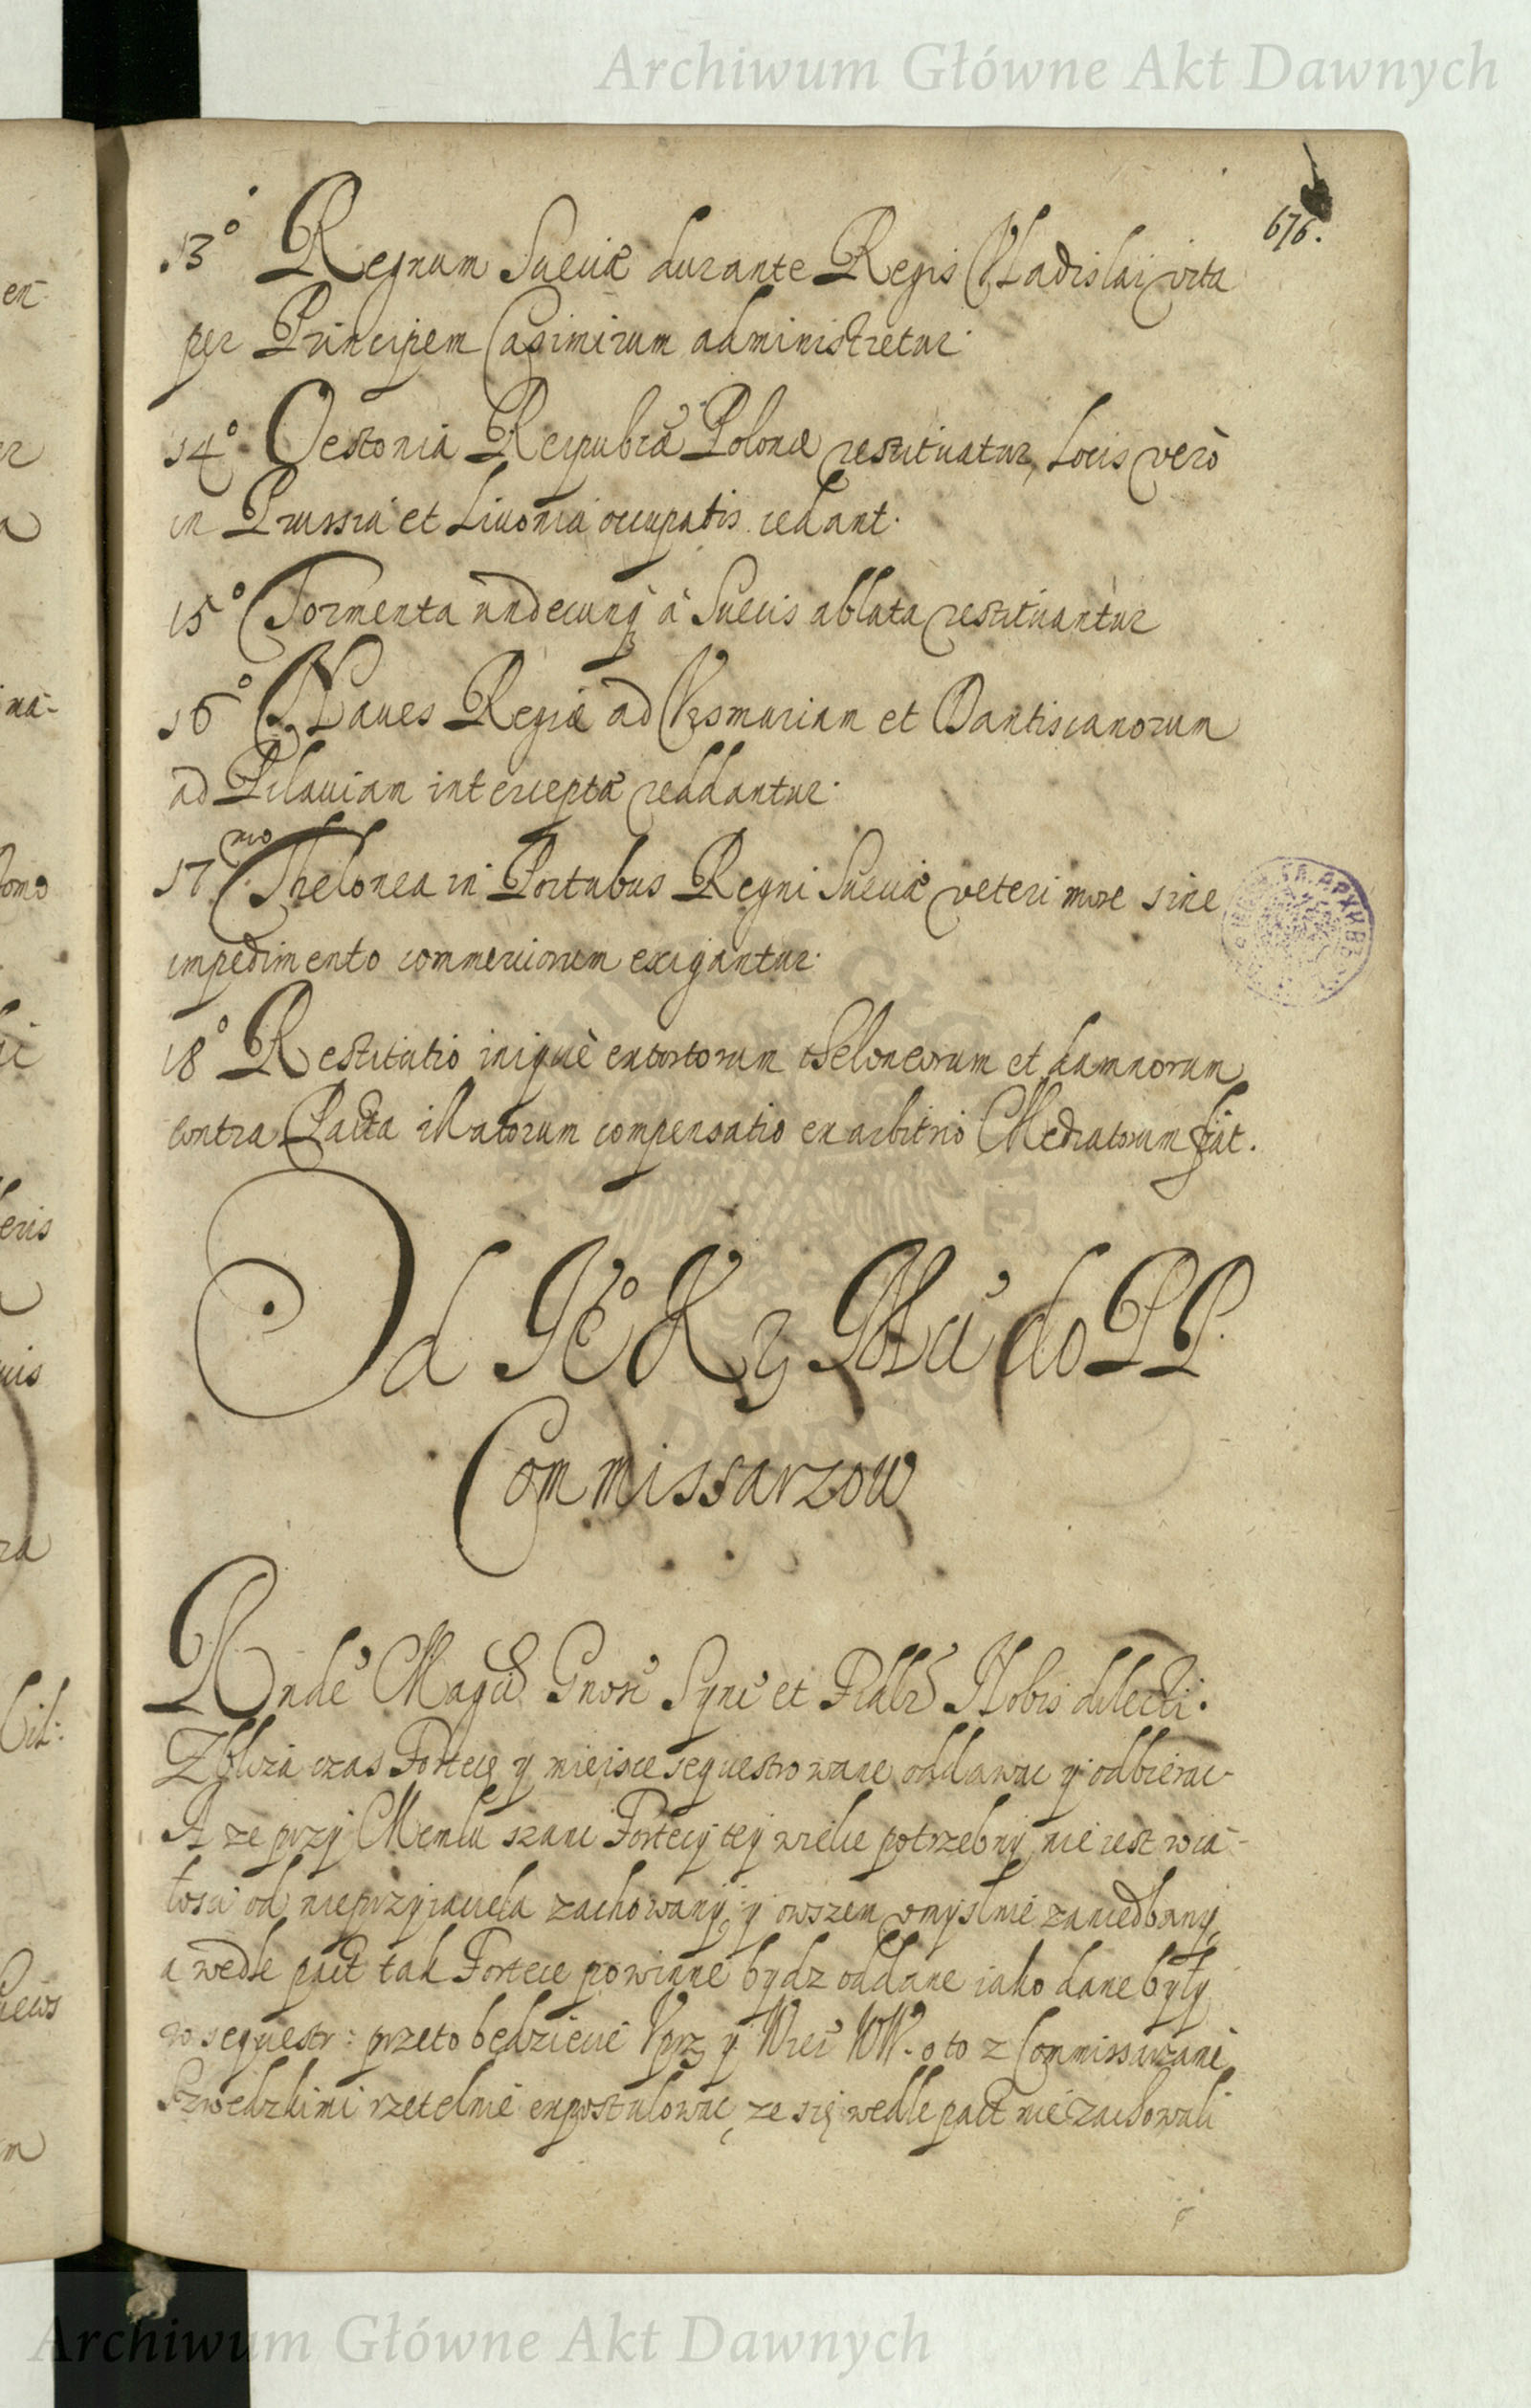 Archiwum Główne Akt Dawnych
676.
13° Regnum Sueciæ durante Regis Vladislai vita
per Principem Casimirum administretur.
14° Oestonia Reipubcæ Polonæ restituatur, Locis verò
in Prussia et Livonia occupatis cedant.
15° Tormenta undecunq à Suecis ablata restituantur
16° Naves Regiæ ad Vismariam et Dantiscanorum
ad Pilaviam interceptæ reddantur.
17mo Thelonea in Portubus Regni Sueciæ veteri more sine
impedimento commerciorum exigantur.
18° Restitutio iniquè extortorum theloneorum et damnorum
contra Pacta illatorum compensatio ex arbitrio Mediatorum fiat.
Od Je° K do PP.
Commissarzow
Rnde Magci Gnosi Synce et Nobis dilecti.
Zbliza czas Fortece y mieisce sequestrowane oddawac y odbierac
A ze przy Memlu szanc Fortecy tey wielce potrzebny nie iest w ca-
łosci od nieprzyiaciela zachowany, y owszem umyslnie zaniedbany,
a wedle pact tak Fortece powinne bydz oddane iako dane były
w sequestr: przeto będziecie Vprz y Wier WW. o to z Commissarzami
Szwedzkimi rzetelnie expostulowac, ze się wedle pact nie zachowali
Archiwum Główne Akt Dawnych